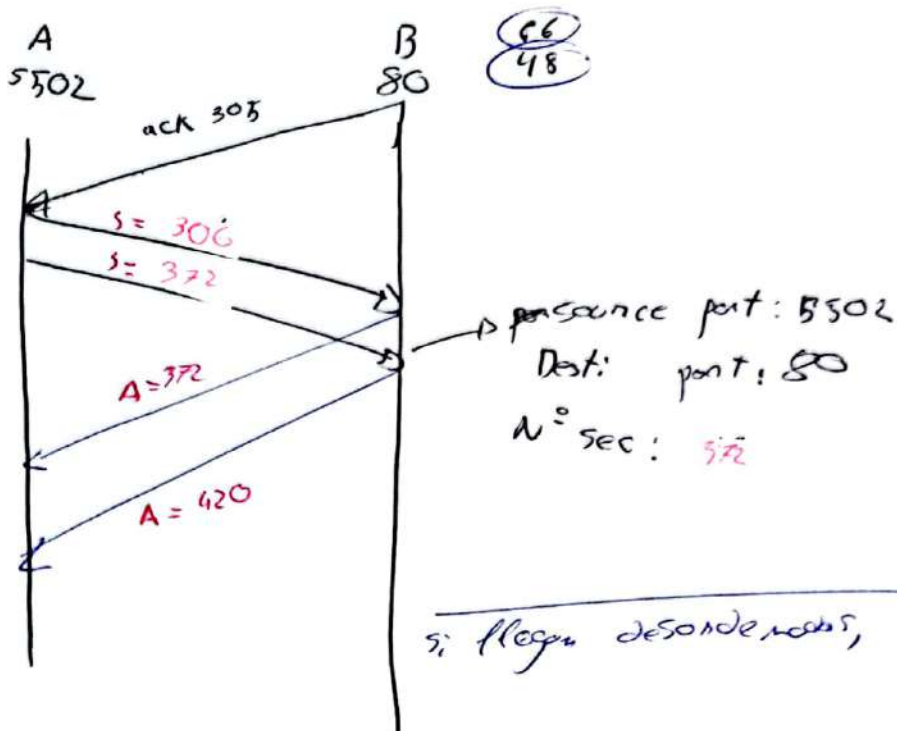 A
5502
B
80
66
48
ack 305
S= 306
S= 372
source port: 5502
Dest: port: 80
Nº sec: 372
A=372
A= 420
si llegan desordenados,